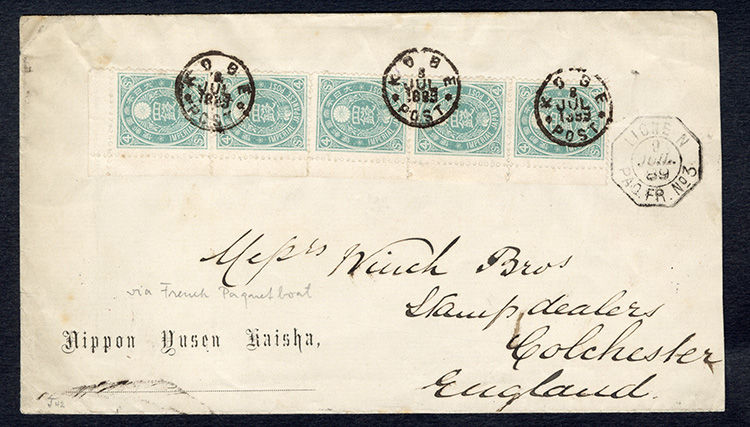 KOBE
8
JUL
1889
POST
KOBE
8
JUL
1889
POST
KOBE
8
JUL
1889
POST
LIGNE N
9
JUIL.
89
PAQ. FR. No 3
IMPERIAL
IMPERIAL
IMPERIAL
IMPERIAL
Messrs Winch Bros
Stamp dealers
Colchester
England.
via French Paquetboat
Nippon Yusen Kaisha,